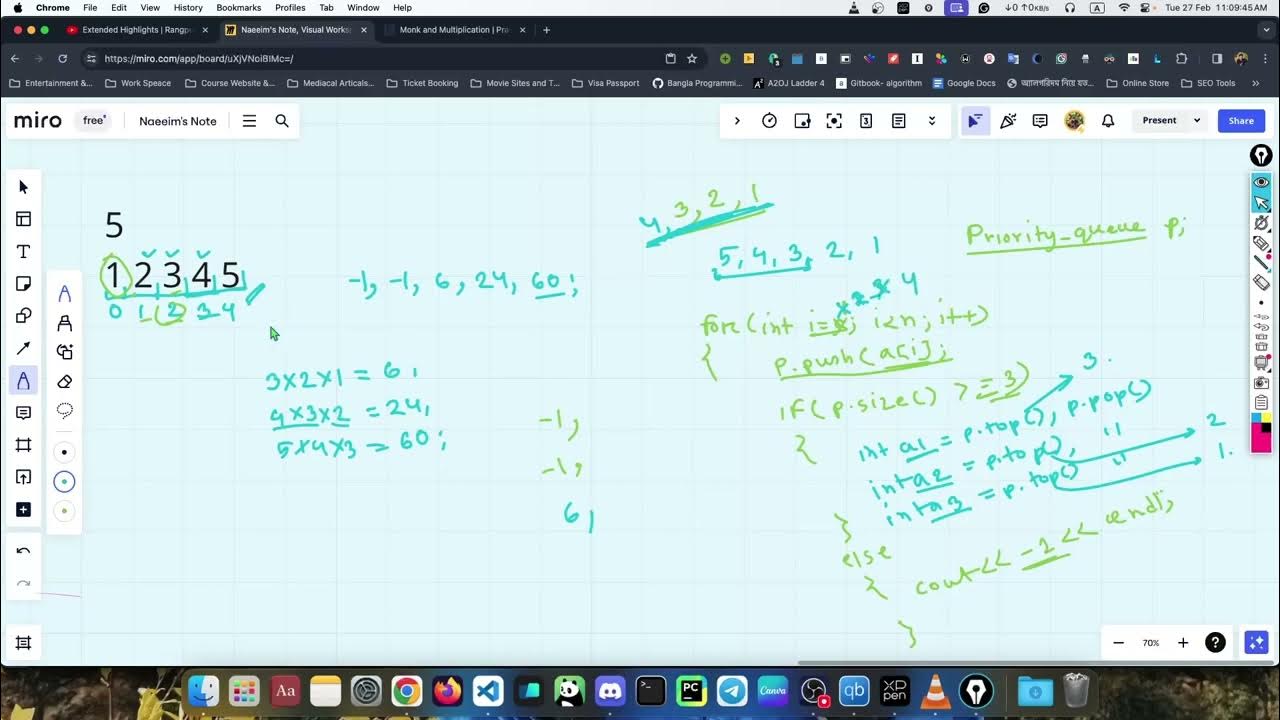 Chrome File Edit View History Bookmarks Profiles Tab Window Help
↓0 ↑0KB/s A Tue 27 Feb 11:09:45 AM
Extended Highlights | Rangp
Naeeim's Note, Visual Works
Monk and Multiplication | Pra
https://miro.com/app/board/uXjVNoiBIMc=/
Entertainment &... Work Speace Course Website &... Mediacal Articals... Ticket Booking Movie Sites and T... Visa Passport Bangla Programmi... A2OJ Ladder 4 Gitbook- algorithm Google Docs Online Store SEO Tools
miro free Naeeim's Note
Present Share
5
1 2 3 4 5
0 1 2 3 4
-1, -1, 6, 24, 60;
3x2x1 = 6,
4x3x2 = 24,
5x4x3 = 60;
-1,
-1,
6,
4, 3, 2, 1
5, 4, 3, 2, 1
Priority_queue p;
2 3 4
fore(int i=; i<n; i++)
{ p.push(a[i];
if(p.size() >= 3)
3.
{ int a1 = p.top(), p.pop()
int a2 = p.top(), " 2
int a3 = p.top() " 1.
}
else
{ cout<< -1 << endl;
}
70%